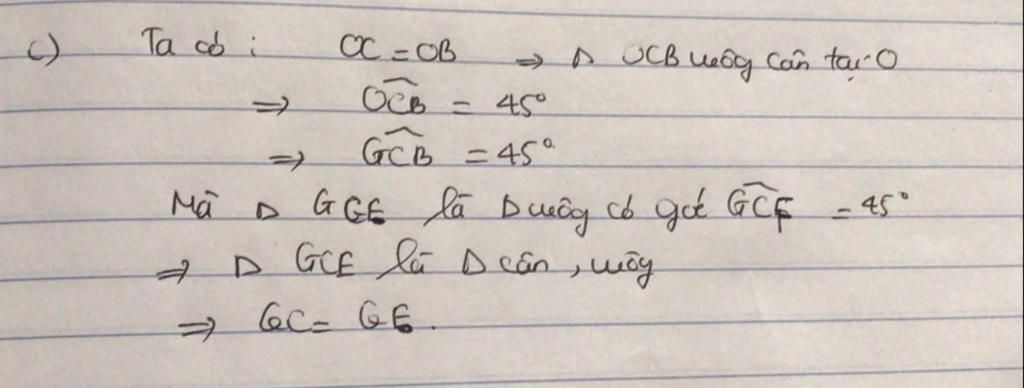 c) Ta có : OC = OB ⇒ Δ OCB vuông cân tại O
⇒ \widehat{OCB} = 45°
⇒ \widehat{GCB} = 45°
Mà Δ GCE là Δ vuông có góc \widehat{GCE} = 45°
⇒ Δ GCE là Δ cân, vuông
⇒ GC = GE.